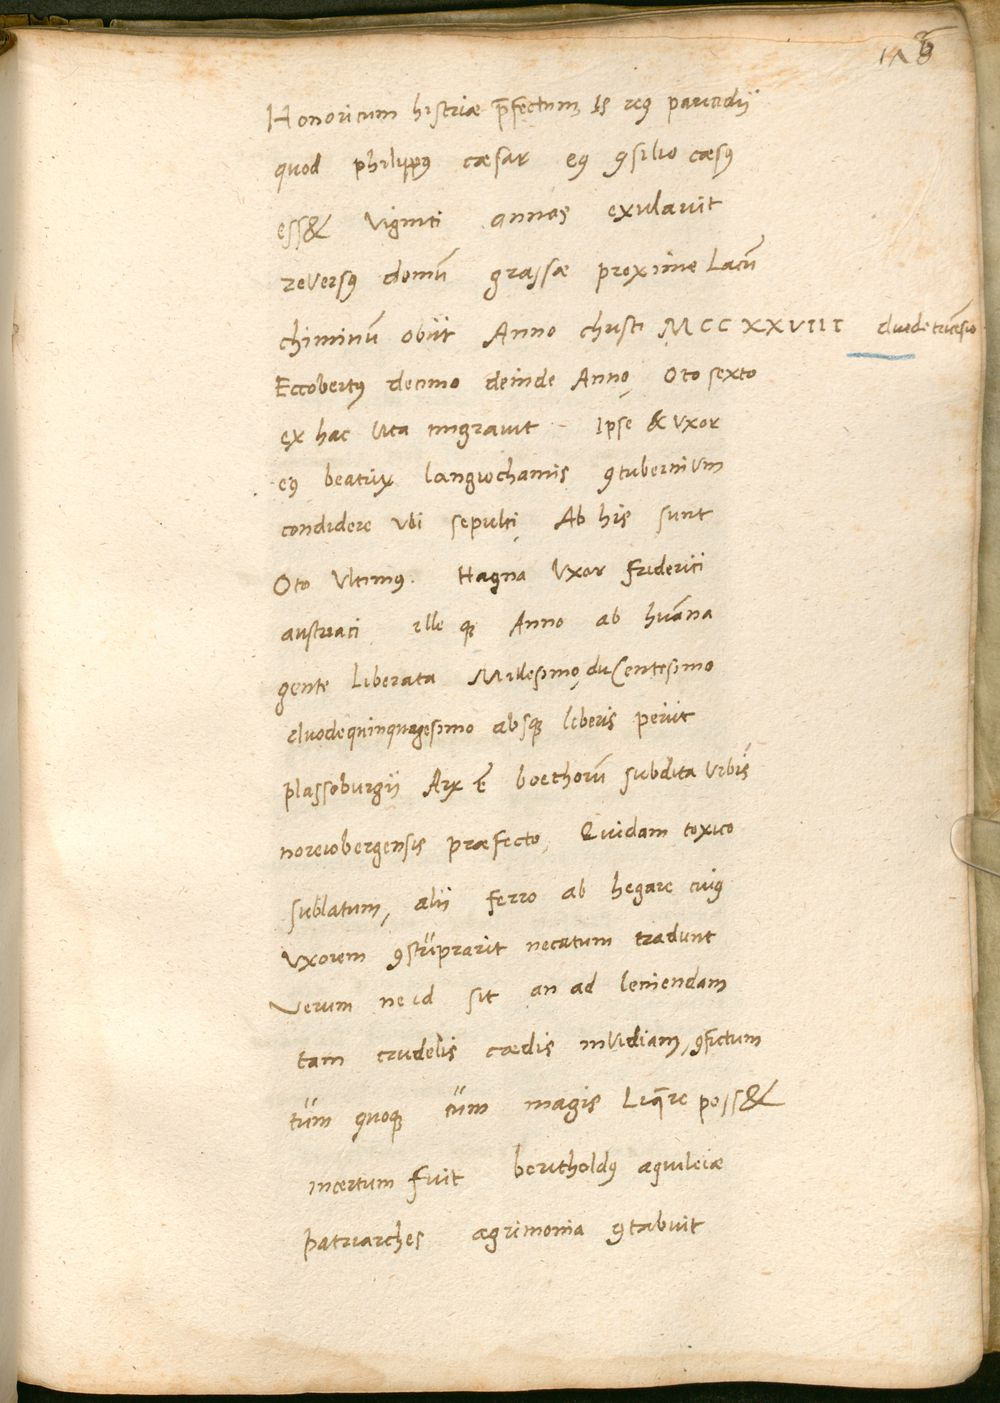 118
Honoricum histriæ p̄fectum, Is reꝰ paricidij
quod philippꝰ cæsar eꝰ ꝯsilio cæsꝰ
ess& viginti annos exulavit
reversꝰ domū grassæ proxime Lacū
chiminū obiit Anno christi MCCXXVIII duodetricēsio
Eccobertꝰ decimo deinde Anno, Oto sexto
ex hac vita migravit Ipse & vxor
eꝰ beatrix langiochamis ꝯtubernium
condidere vbi sepulti, Ab his sunt
Oto vltimꝰ. Hagna Vxor friderici
austriaci ille qꝫ Anno ab huāna
gente Liberata Millesimo, duCentesimo
duodequinquagesimo absqꝫ liberis periit
plassoburgij Arx ē boethorū subdita Vrbis
noreiobergensis præfecto, Quidam toxico
sublatum, alii ferro ab hegare cuiꝰ
vxorem ꝯstüprarit necatum tradunt
Verum ne id sit an ad leniendam
tam crudelis cædis inVidiam, ꝯfictum
tüm quoqꝫ cüm magis Liq̄re poss&
incertum fuit beritholdꝰ aquileiæ
patriarches ægrimonia ꝯtabuit